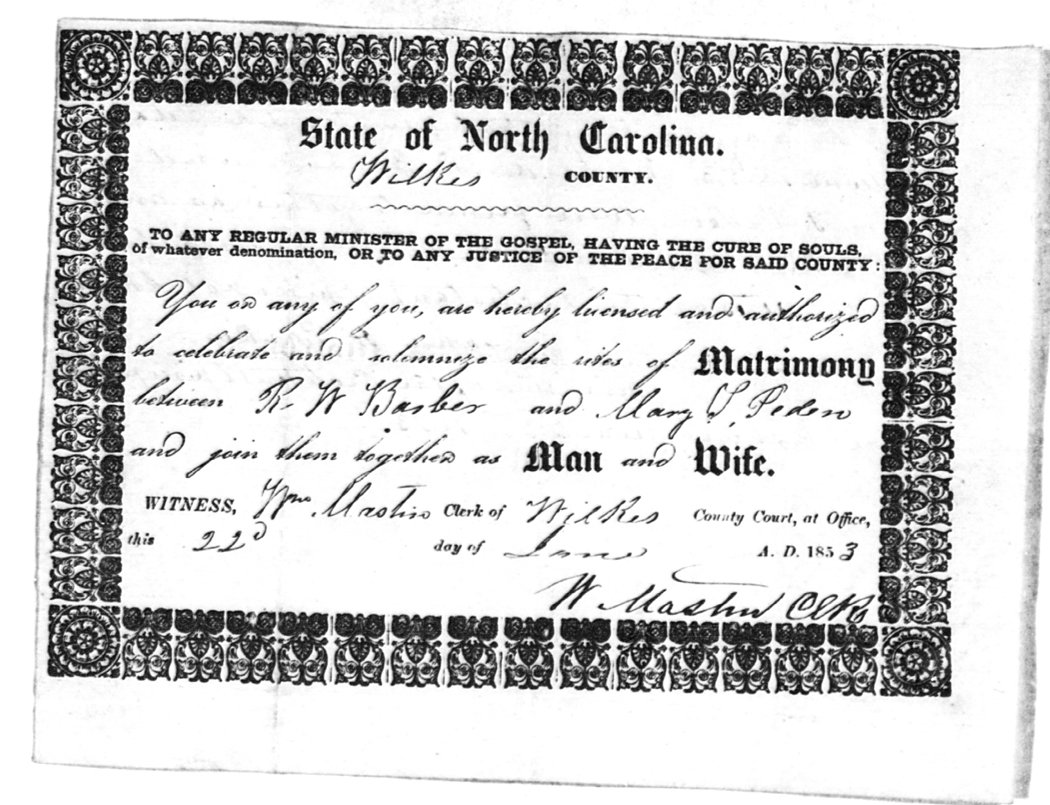 State of North Carolina.
Wilkes COUNTY.
TO ANY REGULAR MINISTER OF THE GOSPEL, HAVING THE CURE OF SOULS,
of whatever denomination, OR TO ANY JUSTICE OF THE PEACE FOR SAID COUNTY:
You or any of you, are hereby licensed and authorized
to celebrate and solemnize the rites of Matrimony
between R. W Barber and Mary S, Peden
and join them together as Man and Wife.
WITNESS, Wm Mastin Clerk of Wilkes County Court, at Office,
this 22d day of June A. D. 1853
W Mastin Clk